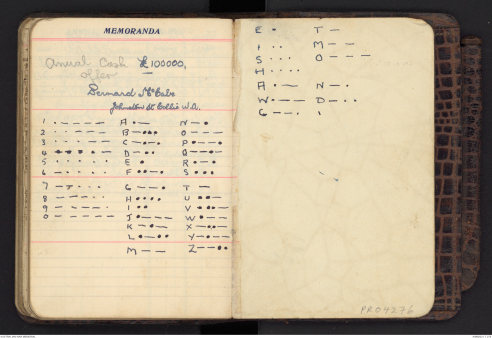 MEMORANDA
Annual Cash £100000,
offer
Bernard McCabe
Johnston St Collie W.A.
1 · — — — — A · — N — ·
2 · · — — — B — · · · O — — —
3 · · · — — C — · — · P · — — ·
4 · · · · — D — · · Q — — · —
5 · · · · · E · R · — ·
6 — · · · · F · · — · S · · ·
7 — — · · · G — — · T —
8 — — — · · H · · · · U · · —
9 — — — — · I · · V · · · —
0 — — — — — J · — — — W · — —
K — · — X — · · —
L · — · · Y — · — —
M — — Z — — · ·
E · T —
I · · M — —
S · · · O — — —
H · · · ·
A · — N — ·
W · — — D — · ·
G — — ·
PR04276